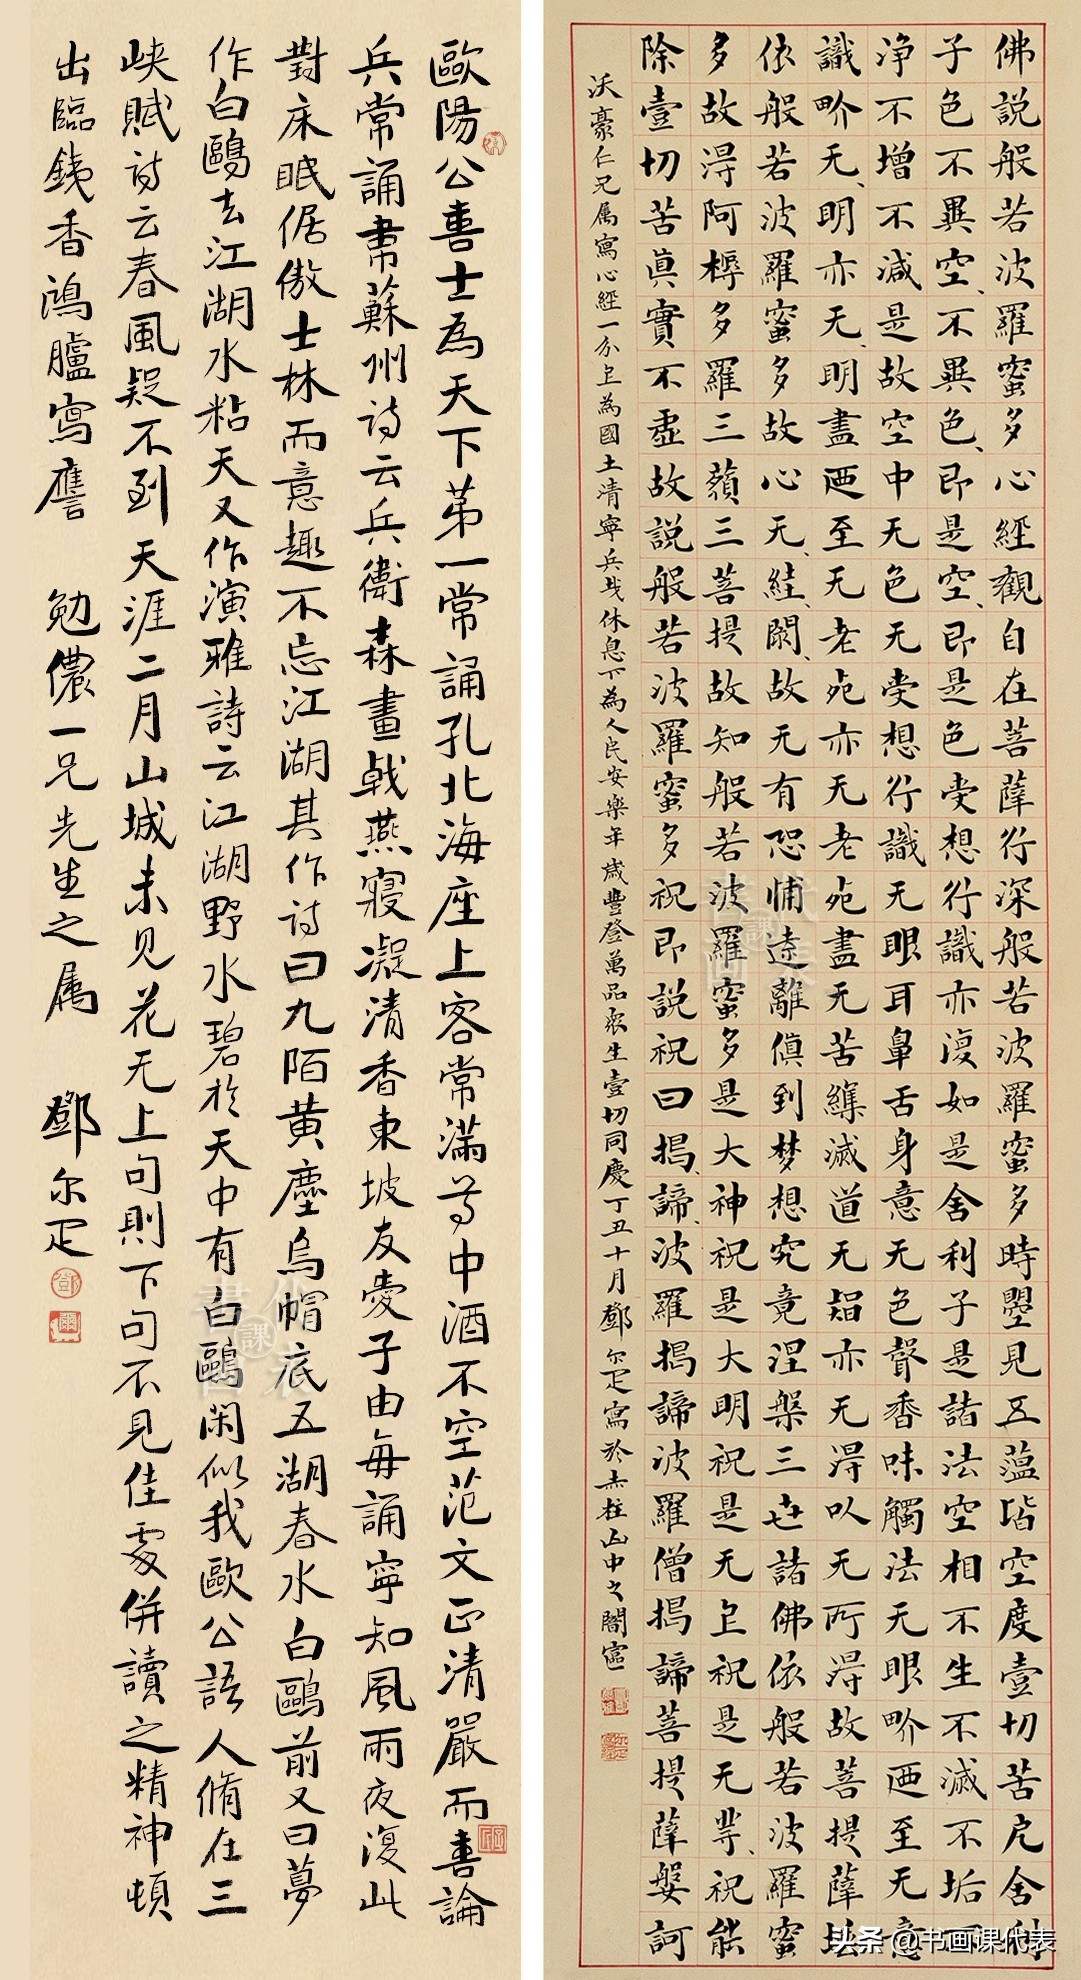 歐陽公喜士為天下第一常誦孔北海座上客常滿尊中酒不空范文正清嚴而喜論
兵常誦韋蘇州詩云兵衛森畫戟燕寢凝清香東坡友愛子由每誦寧知風雨夜復此
對床眠倨傲士林而意趣不忘江湖其作詩曰九陌黃塵烏帽底五湖春水白鷗前又曰夢
作白鷗去江湖水粘天又作演雅詩云江湖野水碧於天中有白鷗閑似我歐公語人脩在三
峽賦詩云春風疑不到天涯二月山城未見花无上句則下句不見佳處併讀之精神頓
出臨銕香鴻臚寫譍 勉儂一兄先生之属 鄧尔疋
佛説般若波羅蜜多心經觀自在菩薩行深般若波羅蜜多時瞾見五蕰皆空度壹切苦戹舍利
子色不異空、不異色、即是空、即是色受想行識亦復如是舍利子是諸法空相不生不滅不垢不
淨不增不減是故空中无色无受想行識无眼耳鼻舌身意无色聲香味觸法无眼界迺至无意
識界无、明亦无、明盡迺至无老死亦无老死盡无苦集滅道无智亦无得以无所得故菩提薩埵
依般若波羅蜜多故心无、絓、閡、故无有恐怖遠離傎到梦想究竟涅槃三世諸佛依般若波羅蜜
多故得阿耨多羅三藐三菩提故知般若波羅蜜多是大神祝是大明祝是无上祝是无等、祝能
除壹切苦真實不虛故説般若波羅蜜多祝即説祝曰揭、諦、波羅揭諦波羅僧揭諦菩提薩婆訶
沃豪仁兄属寫心經一分上為國土清寧兵戈休息下為人民安樂年歲豐登萬品衆生壹切同慶丁丑十月鄧尔疋寫於赤柱山中之闇
書画課代表
書画課代表
头条 @书画课代表